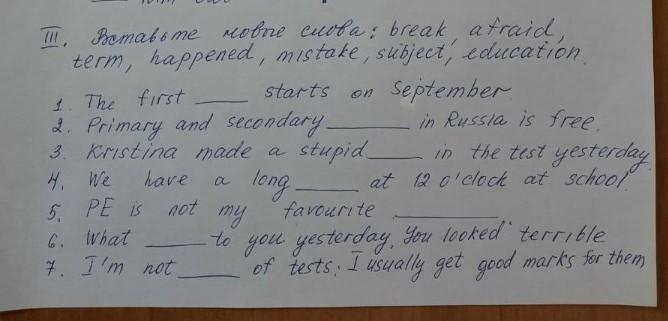 III. Вставьте новые слова: break, afraid,
term, happened, mistake, subject, education.
1. The first ____ starts on September
2. Primary and secondary ____ in Russia is free.
3. Kristina made a stupid ____ in the test yesterday.
4. We have a long ____ at 12 o'clock at school.
5. PE is not my favourite ____
6. What ____ to you yesterday, You looked terrible
7. I'm not ____ of tests; I usually get good marks for them